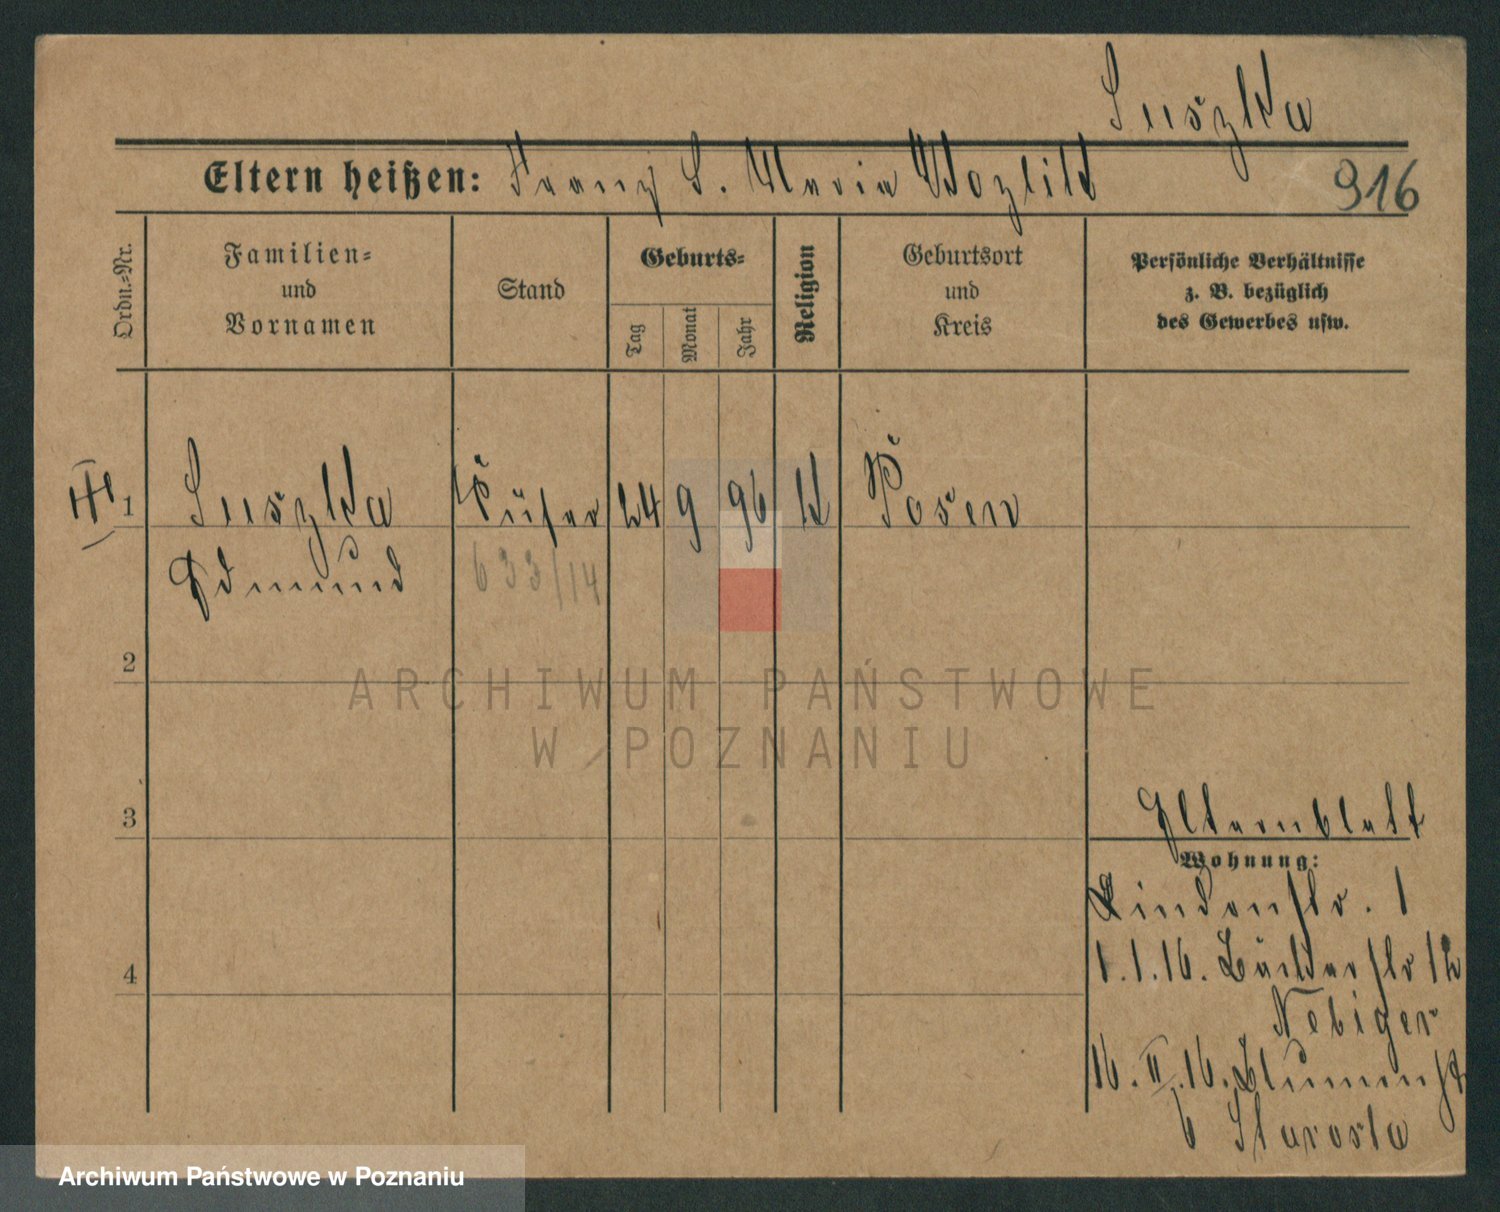 Suszka
Eltern heißen: Franz S. Maria Wozlik
916
Ordn.-Nr.
Familien-
und
Vornamen
Stand
Geburts-
Tag
Monat
Jahr
Religion
Geburtsort
und
Kreis
Persönliche Verhältnisse
z. B. bezüglich
des Gewerbes usw.
1 Suszka 24 9 96 K Posen
Edmund 633/14
2
ARCHIWUM PAŃSTWOWE
W POZNANIU
3
Elternblatt
Wohnung:
Lindenstr. 1
4
1.1.16. Bäckerstr 12
Nebiger
16.II.16. Blumenstr
6 Starosta
Archiwum Państwowe w Poznaniu